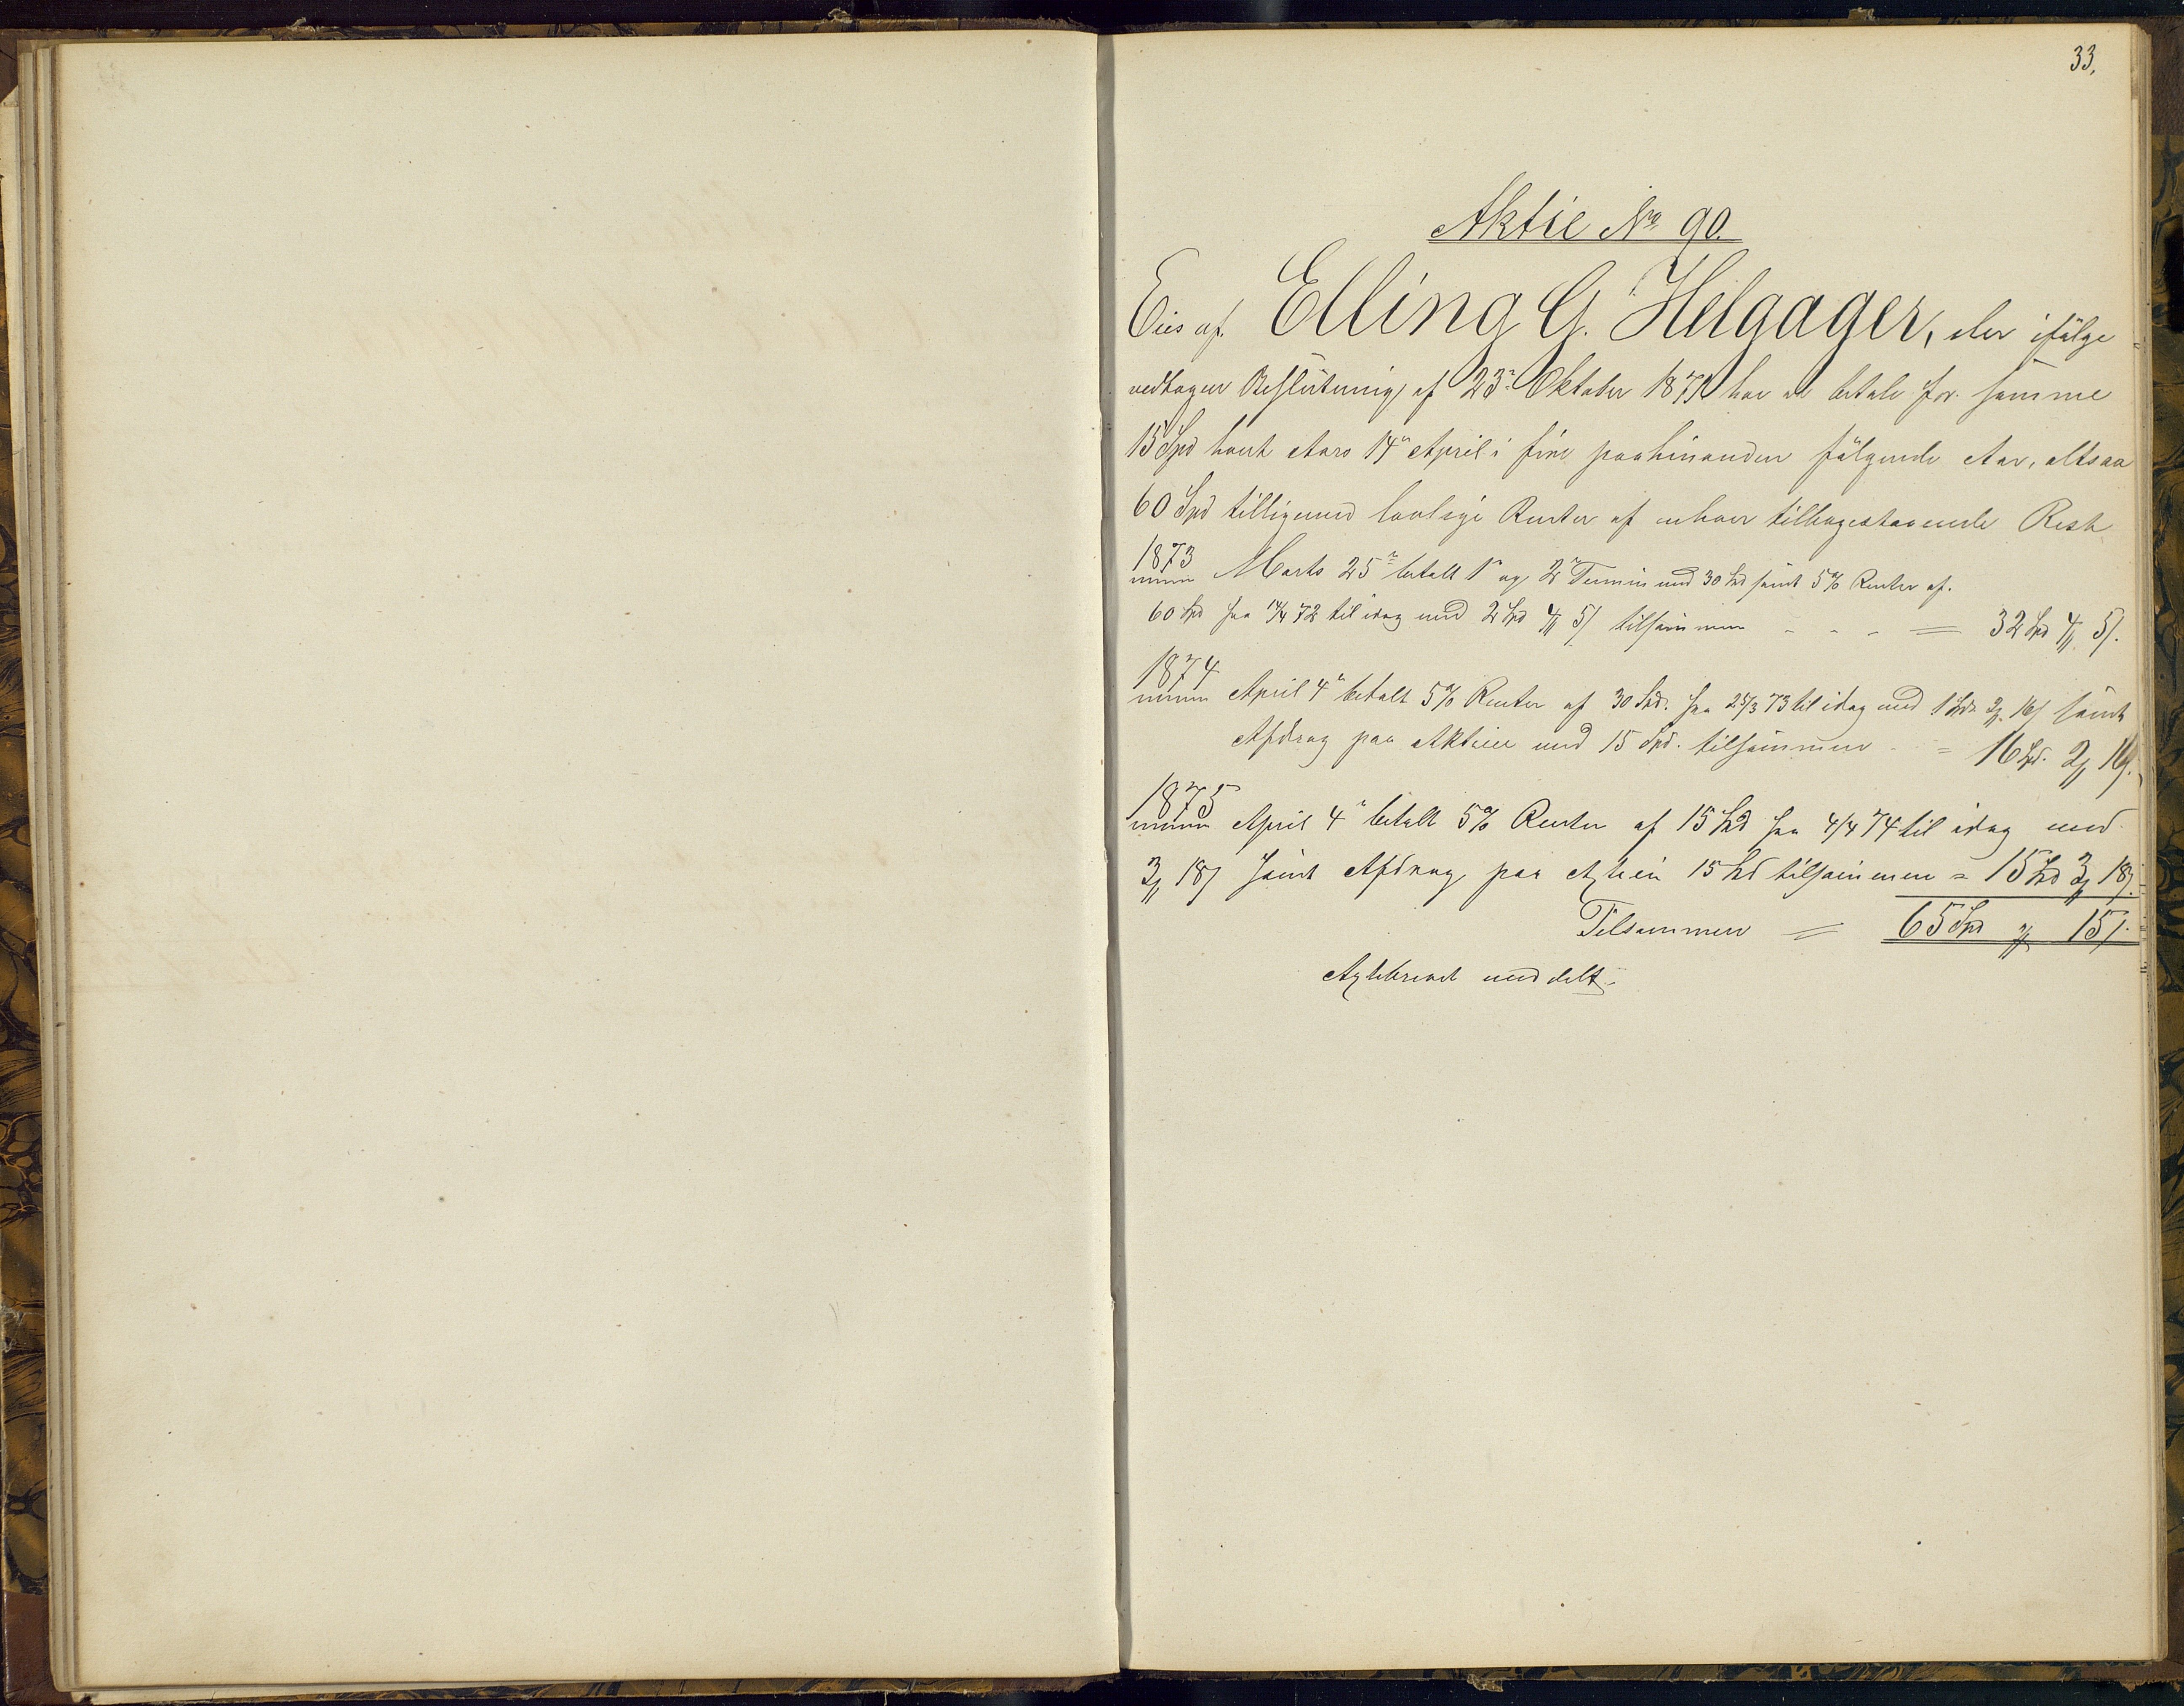 33.
Aktie No 90.
Eies af. Elling G. Helgager, der ifølge
vedtagen Beslutning af 23de Oktober 1871 har at betale for samme
15 Spd hvert Aars 14de April i fire paahinanden følgende Aar, altsaa
60 Spd tilligemed lovlige Renter af enhver tilbagestaaende Rest
1873 Marts 25de betalt 1ste og 2den Termin med 30 Spd samt 5% Renter af.
60 Spd fra 14/4 72 til idag med 2 Spd 4 5 tilsammen - - - = 32 Spd 4 5.
1874 April 4de betalt 5% Renter af 30 Spd. fra 25/3 73 til idag med 1 Spd. 2 16 samt
Afdrag paa Aktien med 15 Spd. tilsammen = 16 Spd. 2 16.
1875 April 4de betalt 5% Renter af 15 Spd fra 4/4 74 til idag med
3 18 samt Afdrag paa Axtien 15 Spd tilsammen = 15 Spd 3 18.
Tilsammen = 65 Spd 15.
Axtebrevet meddelt.